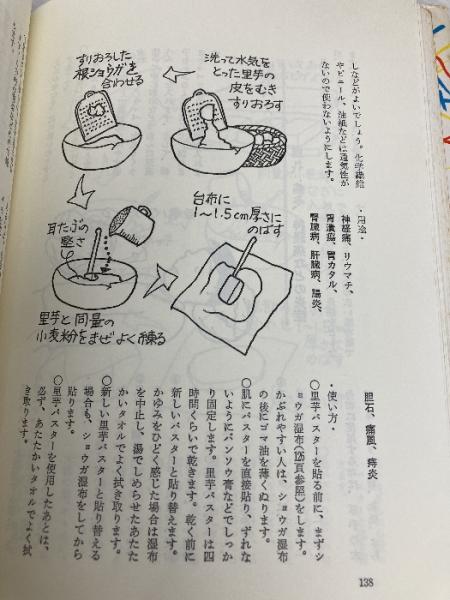 しなどがよいでしょう。化学繊維
やビニール、油紙などは通気性が
ないので使わないようにします。
洗って水気を
とった里芋の
皮をむき
すりおろす
すりおろした
根ショウガを
合わせる
耳たぶの
堅さ
里芋と同量の
小麦粉をまぜよく練る
台布に
1〜1.5cm厚さに
のばす
・用途・
神経痛、リウマチ、
胃潰瘍、胃カタル、
腎臓病、肝臓病、腸炎、
胆石、痛風、痔炎
・使い方・
○里芋パスターを貼る前に、まずシ
ョウガ湿布(125頁参照)をします。
かぶれやすい人は、ショウガ湿布
の後にゴマ油を薄くぬります。
○肌にパスターを直接貼り、ずれな
いようにバンソウ膏などでしっか
り固定します。里芋パスターは四
時間くらいで乾きます。乾く前に
新しいパスターと貼り替えます。
かゆみをひどく感じた場合は湿布
を中止し、湯でしめらせたあたた
かいタオルでよく拭き取ります。
○新しい里芋パスターと貼り替える
場合も、ショウガ湿布をしてから
貼ります。
○里芋パスターを使用したあとは、
必ず、あたたかいタオルでよく拭
き取ります。
138